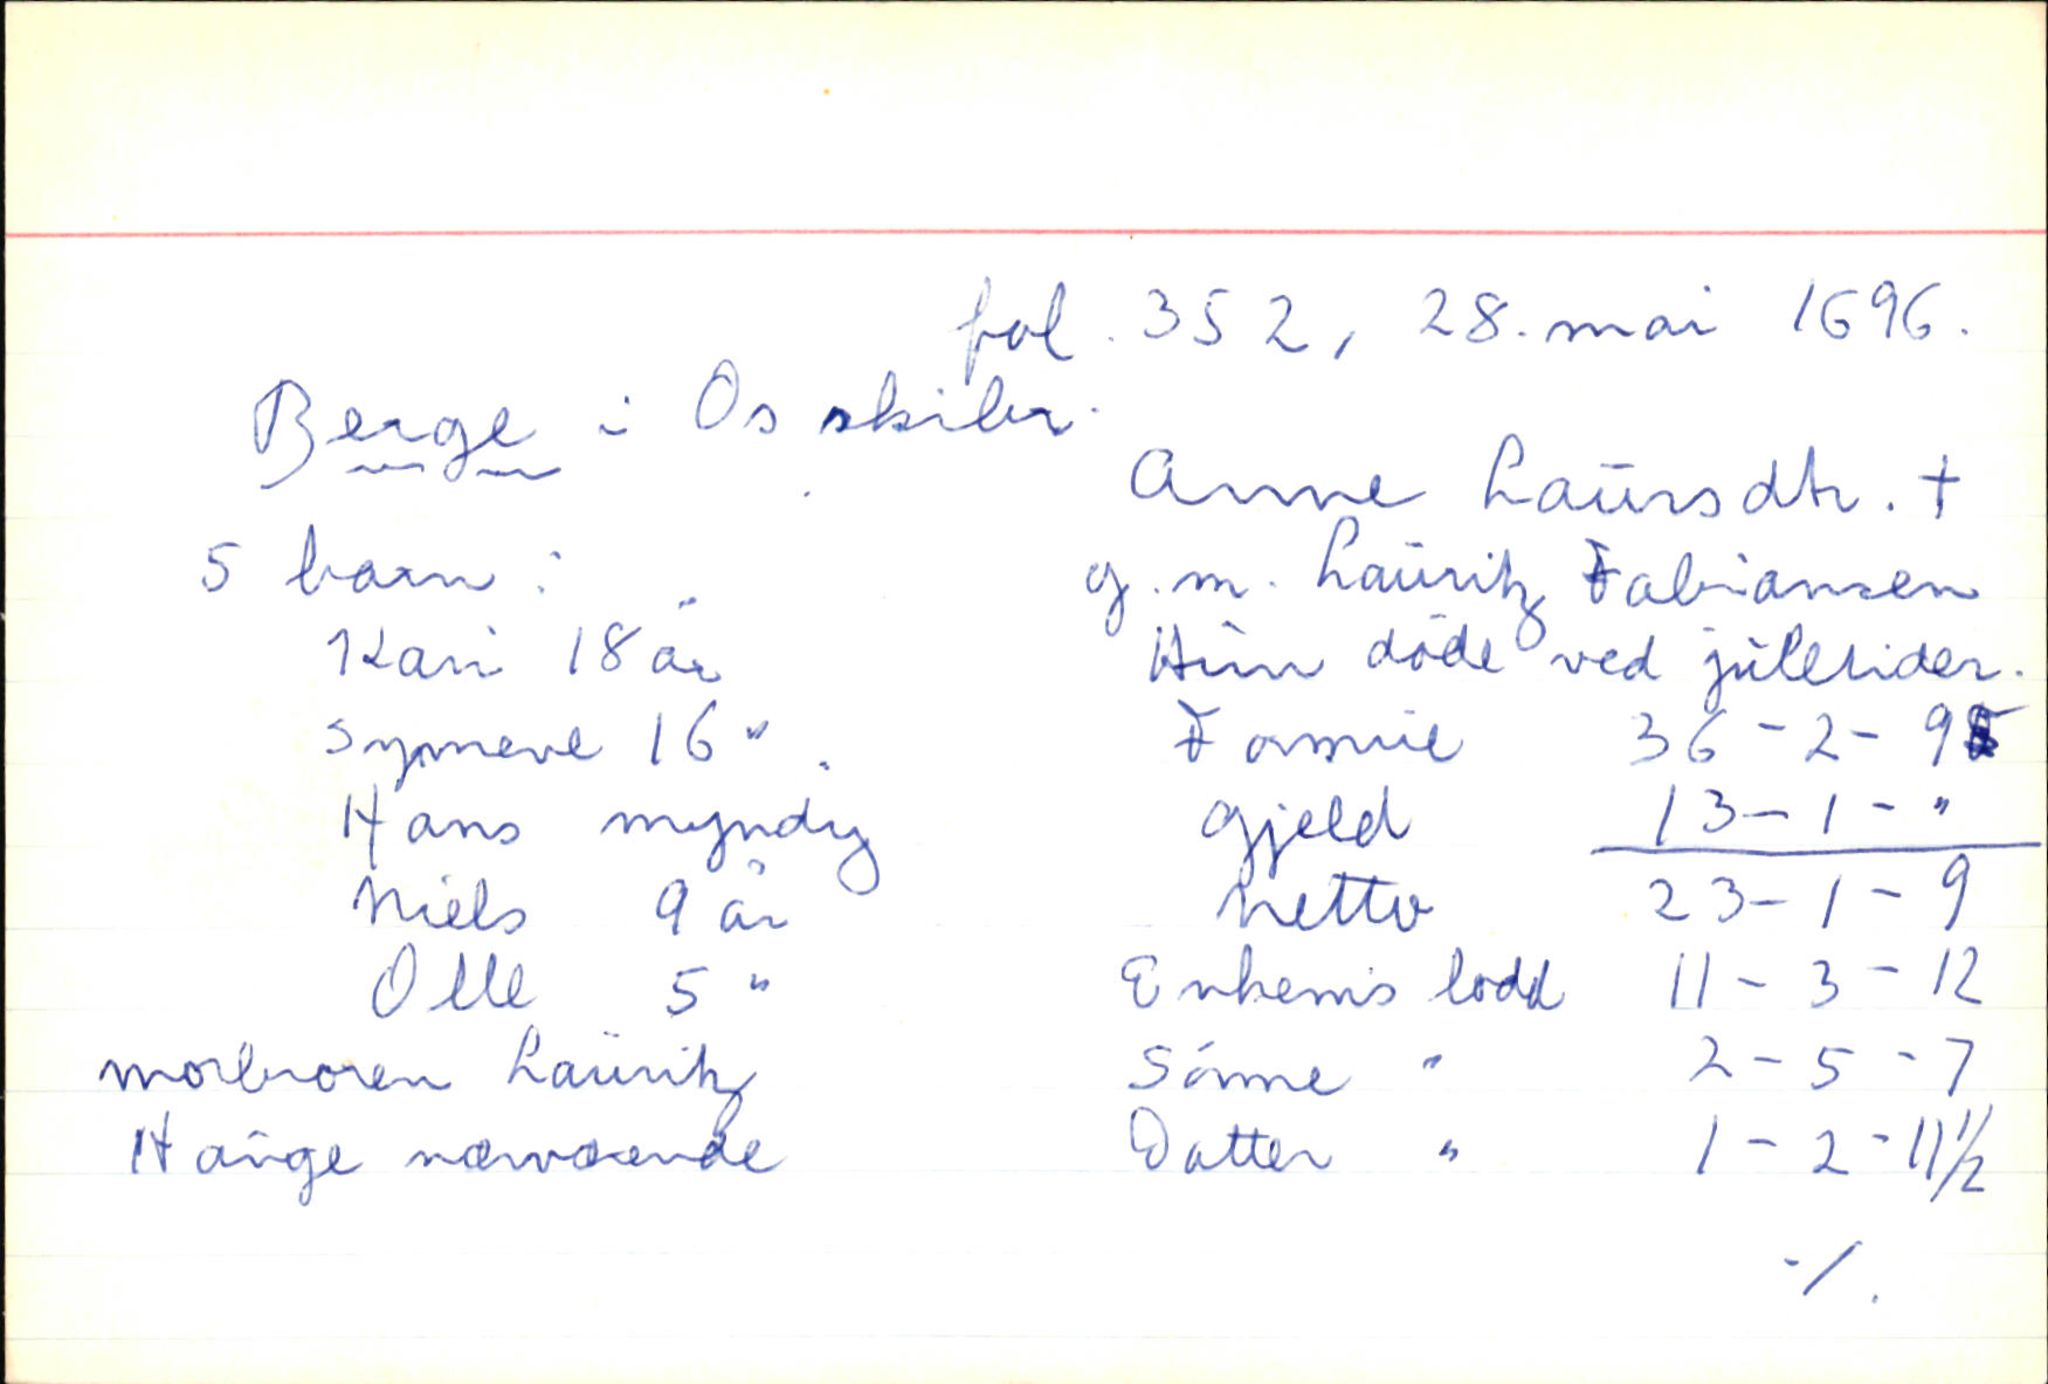 fol. 352, 28. mai 1696.
Berge i Os skibr.
Anne Laursdtr. +
5 barn: g. m. Lauritz Fabiansen
Kari 18 år Hun døde ved juletider.
Synneve 16 " Formue 36 - 2 - 9
Hans myndig gjeld 13 - 1 - "
Niels 9 år netto 23 - 1 - 9
Olle 5 " Enkem's lodd 11 - 3 - 12
morbroren Lauritz Sønne " 2 - 5 - 7
Hauge nærværende Datter " 1 - 2 - 11 1/2
./.